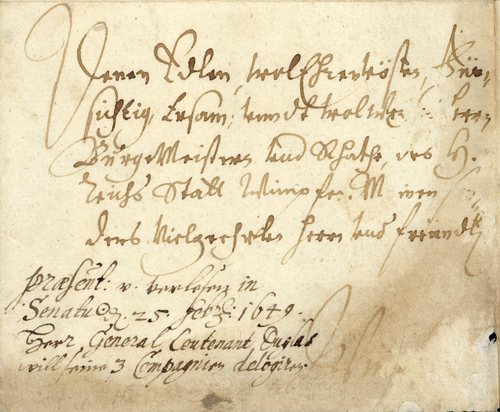 Denen Edlen, Wolehrenvösten, Für,
sichtig, Ersam, unndt Wolweisen Herrn
BurgeMeistern und Rhathe, des H.
Reichs Statt Wimpfen. Meinen
ders Vielgeehrten Herrn und freündt
præsent: v. verlesen in
Senatu d. 25 feb: 1649.
Herr General Leutenant Duglas
will seine 3 Compagnien delogiren.